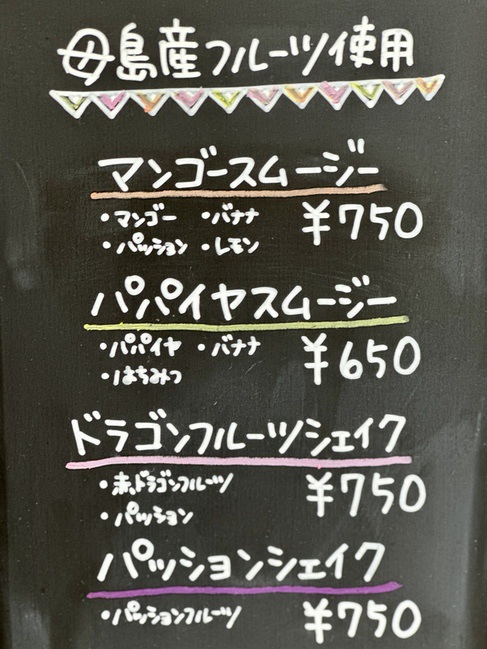 母島産フルーツ使用
マンゴースムージー
・マンゴー ・バナナ ¥750
・パッション ・レモン
パパイヤスムージー
・パパイヤ ・バナナ ¥650
・はちみつ
ドラゴンフルーツシェイク
・赤ドラゴンフルーツ ¥750
・パッション
パッションシェイク
・パッションフルーツ ¥750